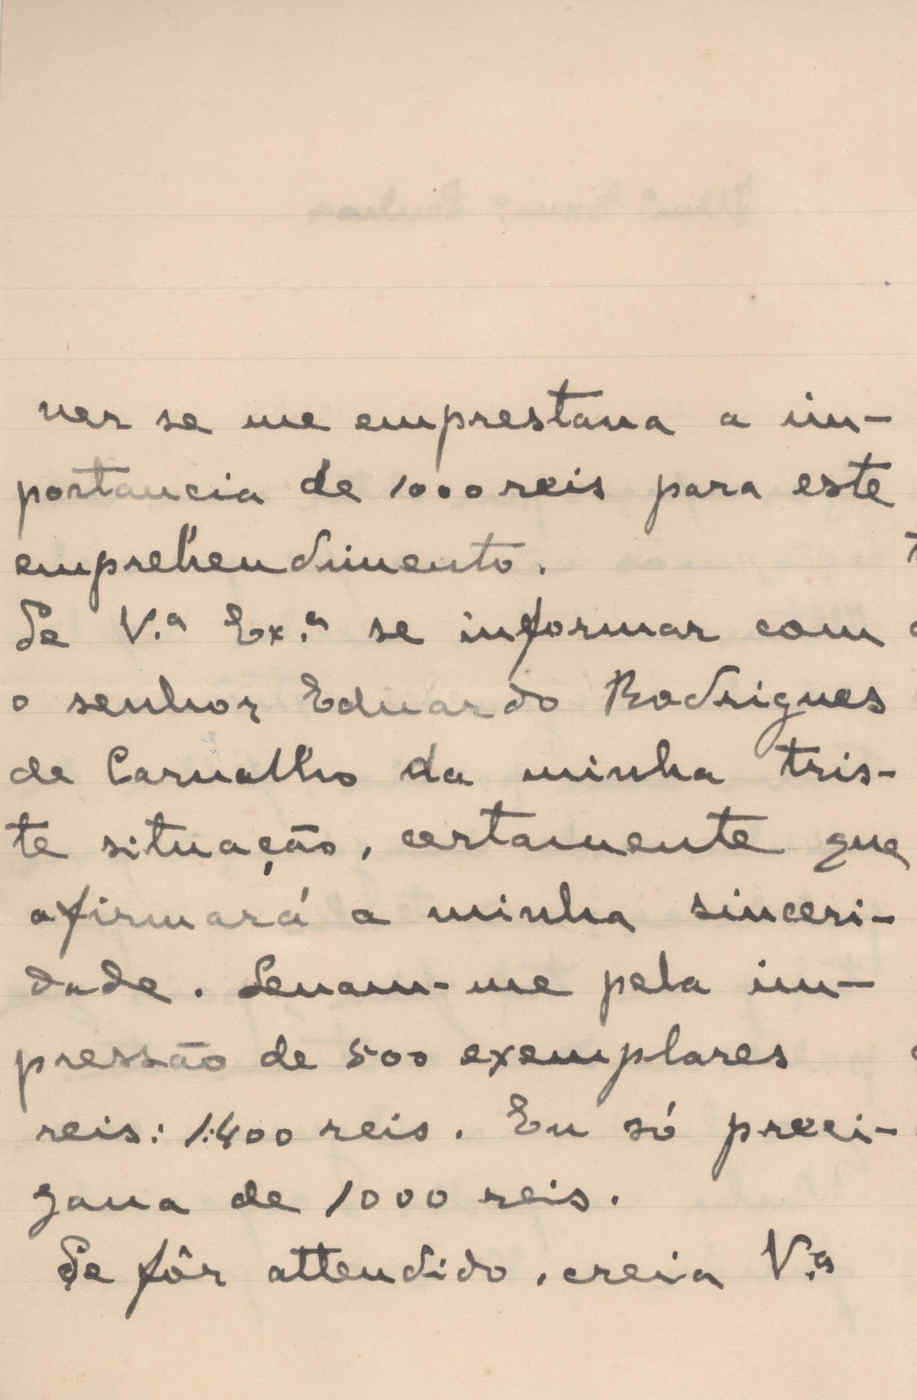 ver se me emprestava a im-
portancia de 1000 reis para este
emprehendimento.
Se V.ª Ex.ª se informar com
o senhor Eduardo Rodrigues
de Carvalho da minha tris-
te situação, certamente que
afirmará a minha sinceri-
dade. Levam-me pela im-
pressão de 500 exemplares
reis: 1:400 reis. Eu só preci-
zava de 1000 reis.
Se fôr attendido, creia V.ª